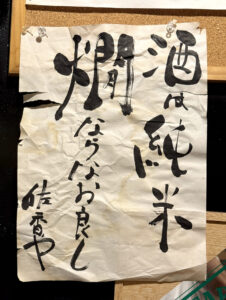 酒は純米
燗ならなお良し
佐香や